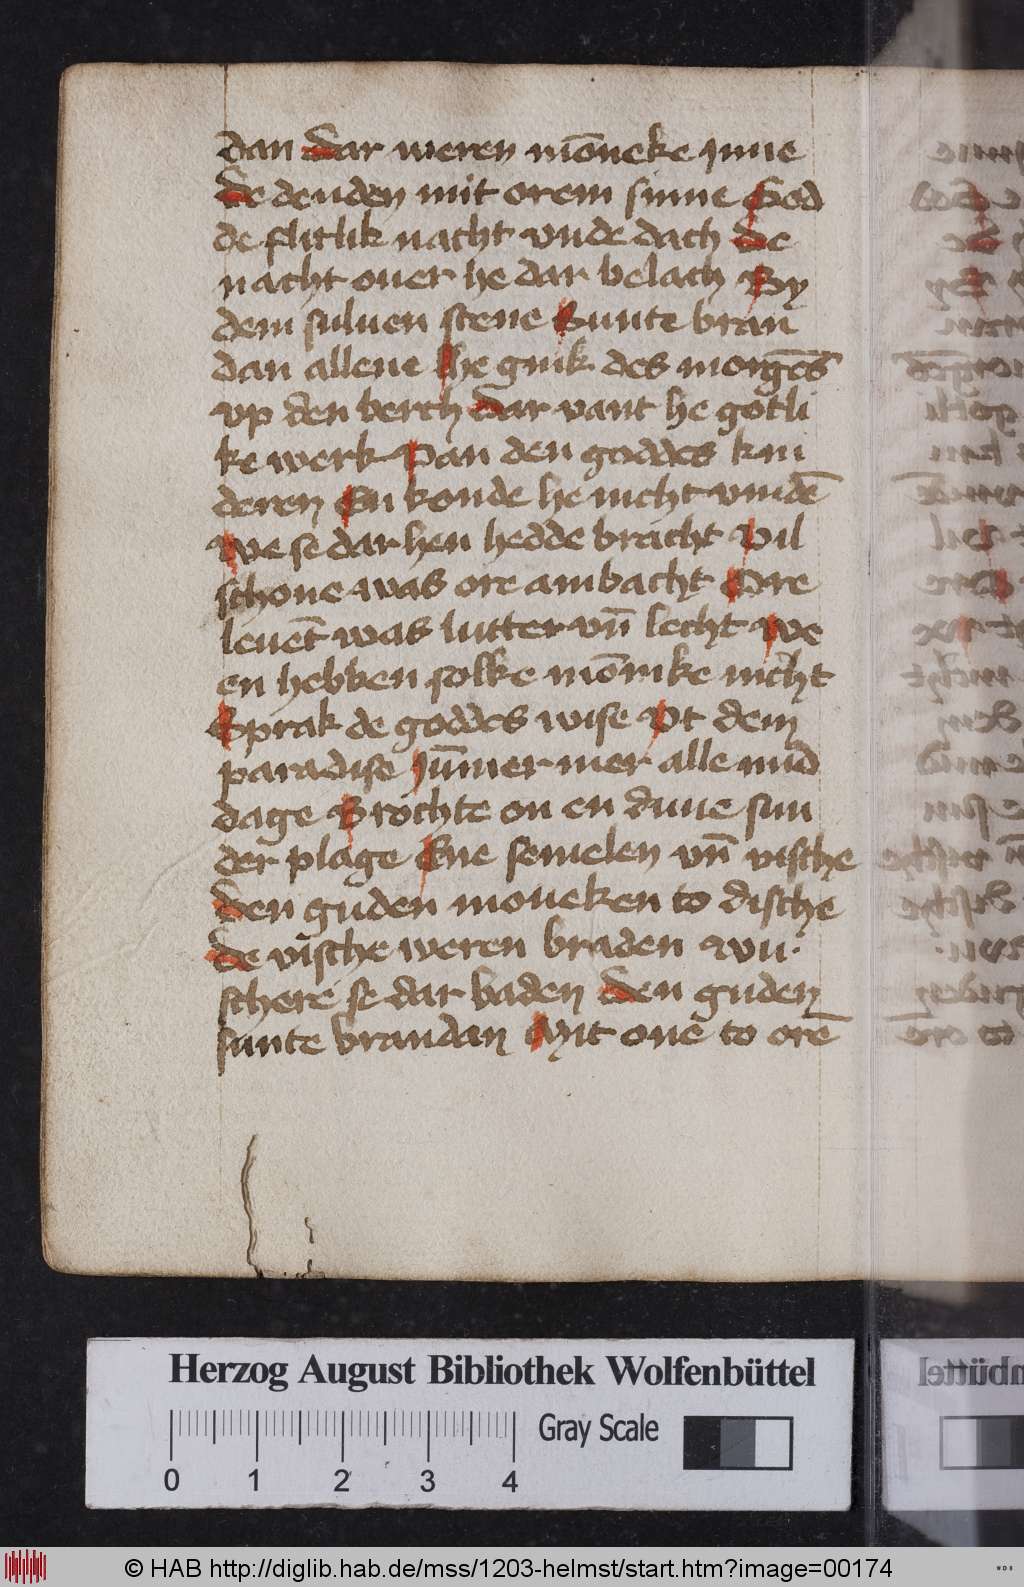 dan Dar weren mōneke jnne
De denden mit orem sinne God
de flitlik nacht vnde dach De
nacht ouer he dar belach By
dem suluen stene Sunte bran
dan allene He gink des morgēs
vp den berch Dar vant he gotli
ke werk Van den goddes kin
deren En konde he nicht vindē
We se dar hen hedde bracht Vil
schone was ore ambacht Ore
leuēt was lutter vn̄ lecht We
en hebben solke mōnike nicht
Sprak de goddes wise Vt dem
paradise Jūmer mer alle mid
dage Brochte on en duue sun
der plage Ene semelen vn̄ vische
Den guden moneken to dische
De vische weren braden wu
schere se dar baden Den guden
sunte brandan Mit onē to orē
Herzog August Bibliothek Wolfenbüttel
Gray Scale
0 1 2 3 4
© HAB http://diglib.hab.de/mss/1203-helmst/start.htm?image=00174